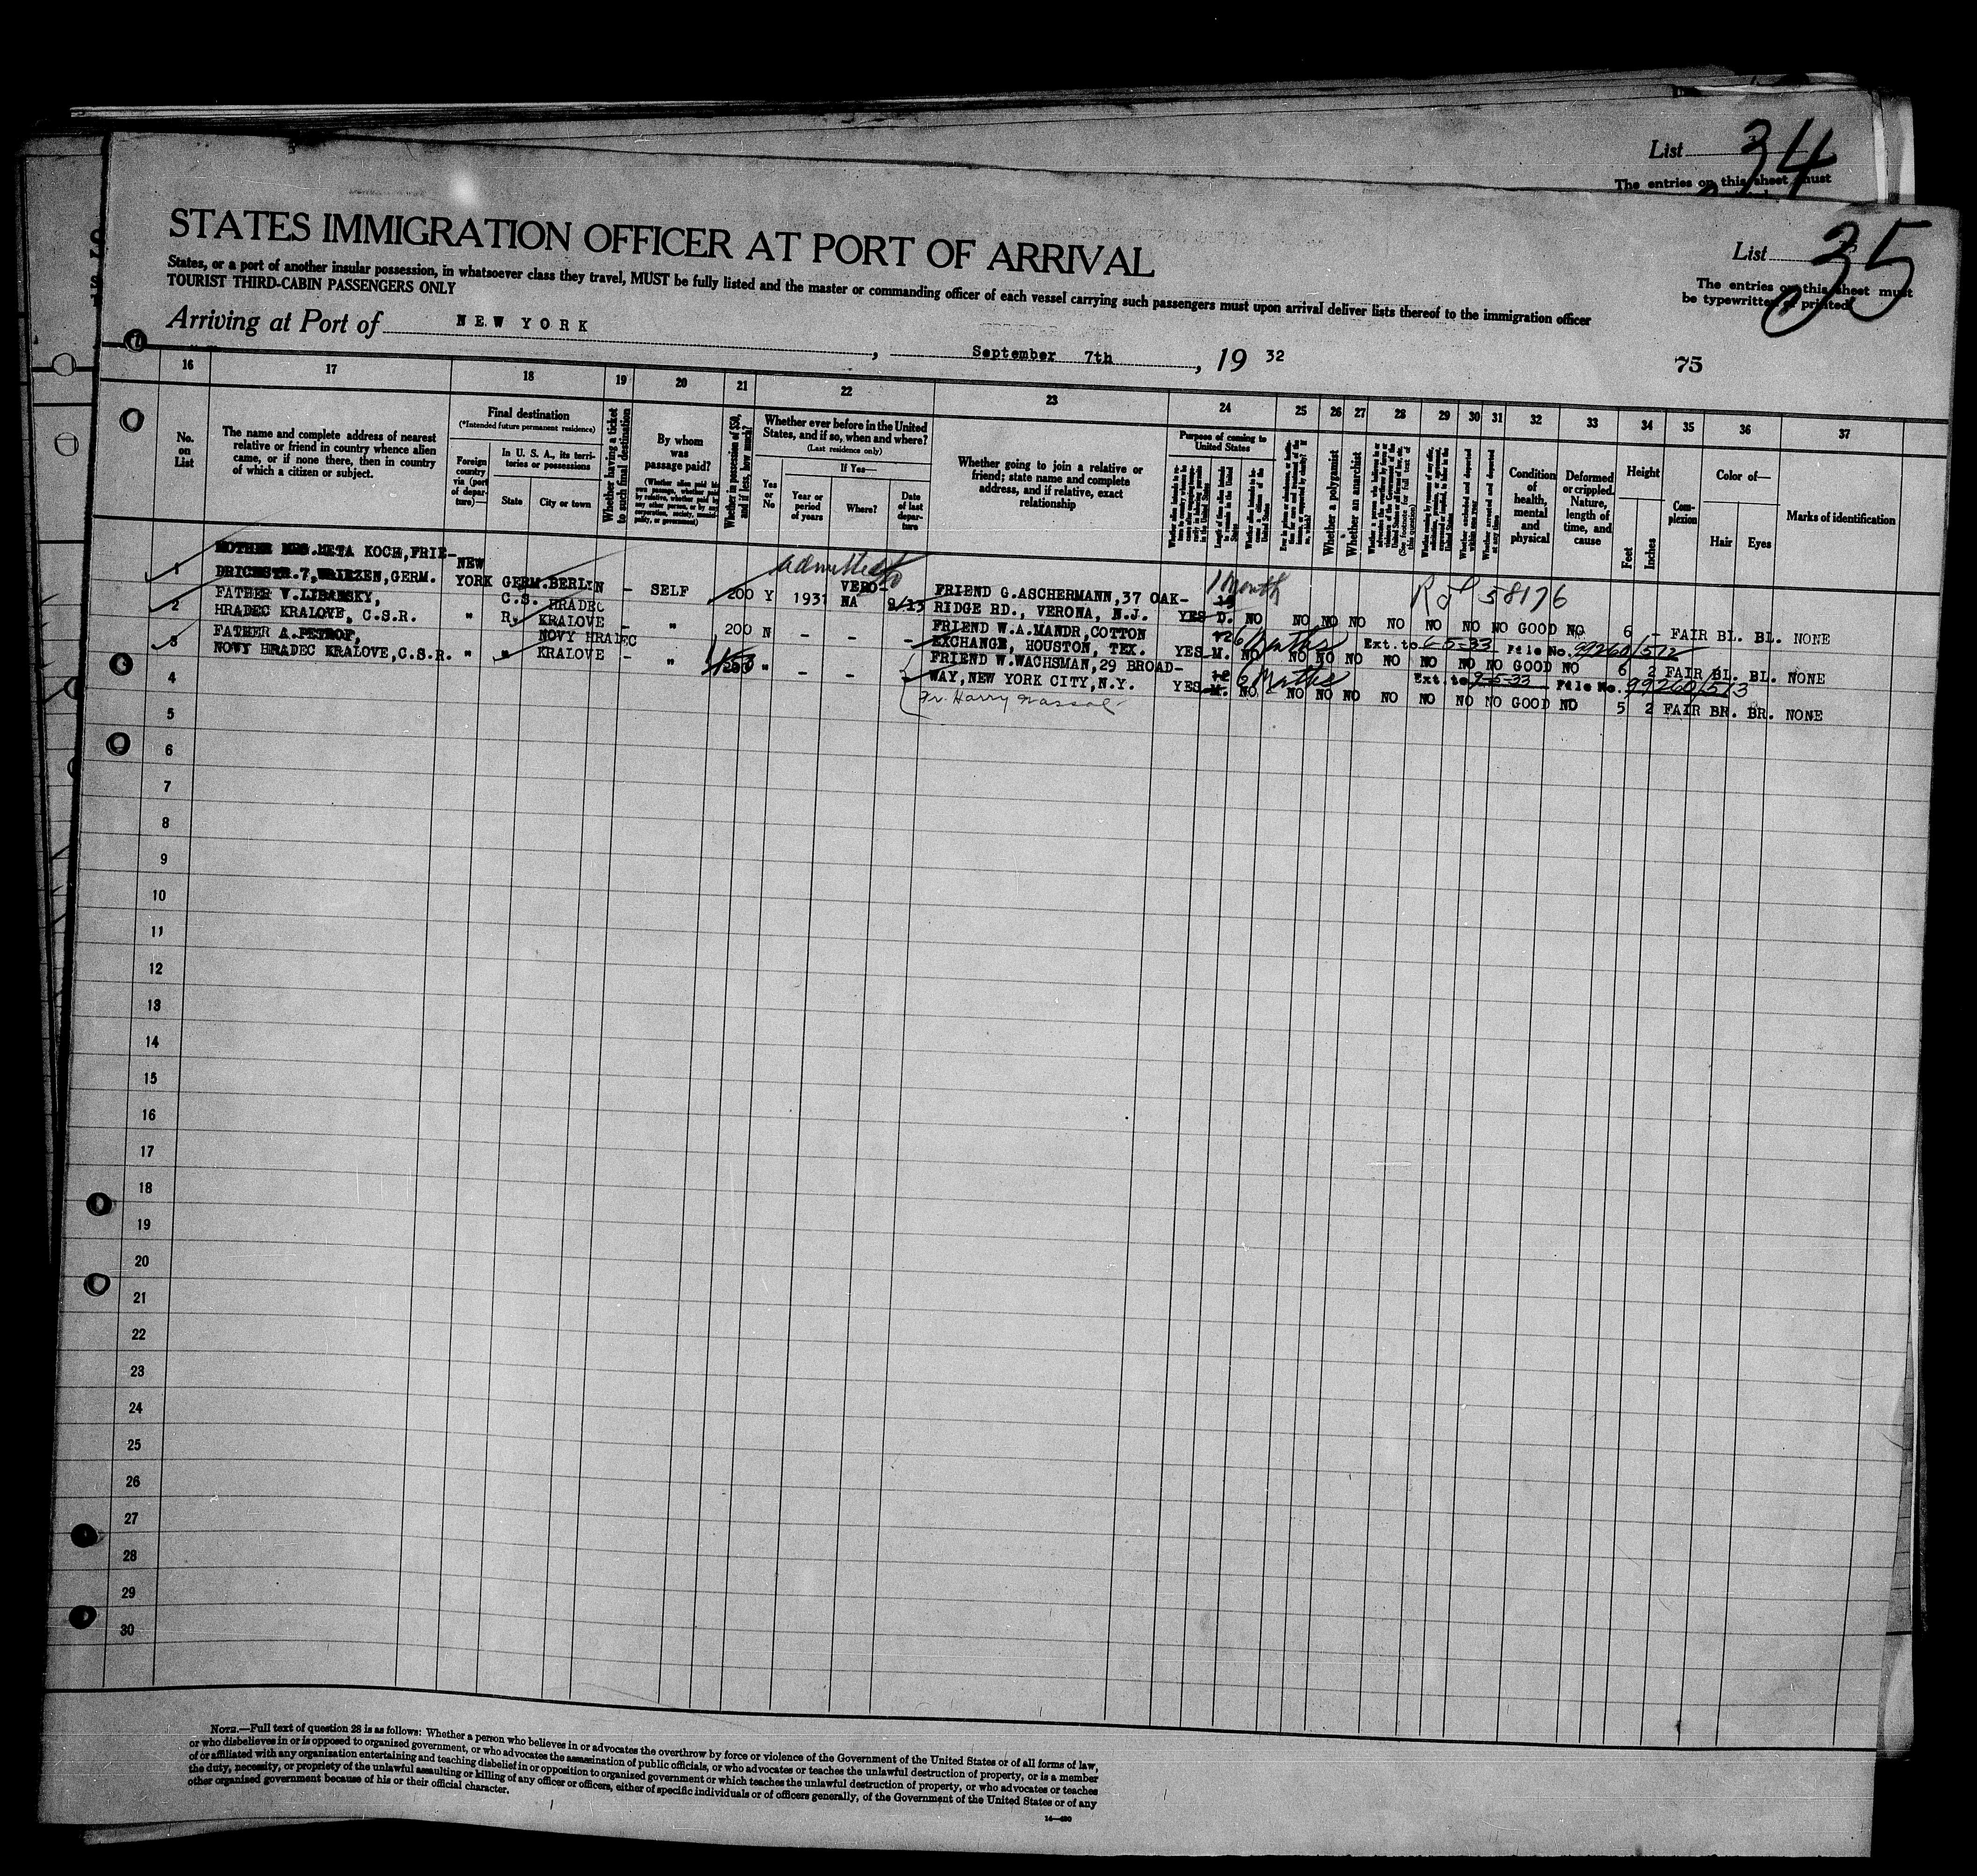 List 34
The entries on this sheet must
List 35
The entries on this sheet must
be typewritten or printed
STATES IMMIGRATION OFFICER AT PORT OF ARRIVAL
States, or a port of another insular possession, in whatsoever class they travel, MUST be fully listed and the master or commanding officer of each vessel carrying such passengers must upon arrival deliver lists thereof to the immigration officer
TOURIST THIRD-CABIN PASSENGERS ONLY
Arriving at Port of NEW YORK, September 7th, 19 32
75
16 17 18 19 20 21 22 23 24 25 26 27 28 29 30 31 32 33 34 35 36 37
No. on List
The name and complete address of nearest
relative or friend in country whence alien
came, or if none there, then in country
of which a citizen or subject.
Final destination
(*Intended future permanent residence)
Foreign country via (port of departure)—
In U. S. A., its territories or possessions
State
City or town
Whether having a ticket
to such final destination
By whom was passage paid?
(Whether alien paid his own passage, whether paid by relative, whether paid by any other person, or by any corporation, society, municipality, or government)
Whether in possession of $50,
and if less, how much?
Whether ever before in the United
States, and if so, when and where?
(Last residence only)
Yes or No
If Yes—
Year or period of years
Where?
Date of last departure
Whether going to join a relative or
friend; state name and complete
address, and if relative, exact
relationship
Purpose of coming to
United States
Whether a polygamist
Whether an anarchist
Whether excluded and deported
within one year
Whether arrested and deported
at any time
Condition of health, mental and physical
Deformed or crippled. Nature, length of time, and cause
Height
Feet
Inches
Complexion
Color of—
Hair
Eyes
Marks of identification
admitted
1 Month
58176
MOTHER MRS.META KOCH,FRIE- NEW
1 DRICHSTR.7,WRIEZEN,GERM. YORK GERM.BERLIN - SELF 200 Y 1931 VERO- NA FRIEND G.ASCHERMANN,37 OAK-
RIDGE RD., VERONA, N.J. YES D. NO NO NO NO NO NO NO NO GOOD NO 6 - FAIR BL. BL. NONE
FATHER V.LIBANSKY, C.S. HRADEC
2 HRADEC KRALOVE, C.S.R. " R. KRALOVE - " 200 N - - - FRIEND W.A.MANDR,COTTON
EXCHANGE, HOUSTON, TEX. YES M. 6 Months Ext. to 6-5-33 File No. 99260/572
NO NO NO NO NO NO NO NO GOOD NO 6 2 FAIR BL. BL. NONE
FATHER A.PETROF, NOVY HRADEC
3 NOVY HRADEC KRALOVE,C.S.R. " " KRALOVE - " " - - - FRIEND W.WACHSMAN,29 BROAD-
WAY,NEW YORK CITY,N.Y. YES M. 6 Months Ext. to 9-5-33 File No. 99260/573
NO NO NO NO NO NO NO NO GOOD NO 5 2 FAIR BR. BR. NONE
Fr. Harry
4
5
6
7
8
9
10
11
12
13
14
15
16
17
18
19
20
21
22
23
24
25
26
27
28
29
30
NOTE.—Full text of question 28 is as follows: Whether a person who believes in or advocates the overthrow by force or violence of the Government of the United States or of all forms of law,
or who disbelieves in or is opposed to organized government, or who advocates the assassination of public officials, or who advocates or teaches the unlawful destruction of property, or is a member
of or affiliated with any organization entertaining and teaching disbelief in or opposition to organized government or which teaches the unlawful destruction of property, or who advocates or teaches
the duty, necessity, or propriety of the unlawful assaulting or killing of any officer or officers, either of specific individuals or of officers generally, of the Government of the United States or of any
other organized government because of his or their official character.